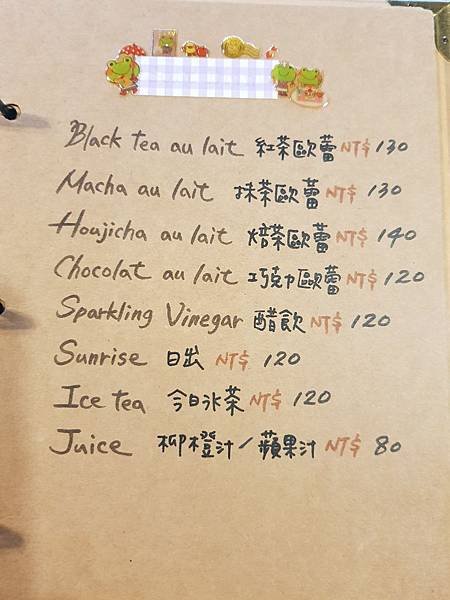 Black tea au lait 紅茶歐蕾 NT$ 130
Macha au lait 抹茶歐蕾 NT$ 130
Houjicha au lait 焙茶歐蕾 NT$ 140
Chocolat au lait 巧克力歐蕾 NT$ 120
Sparkling Vinegar 醋飲 NT$ 120
Sunrise 日出 NT$ 120
Ice tea 今日冰茶 NT$ 120
Juice 柳橙汁/蘋果汁 NT$ 80